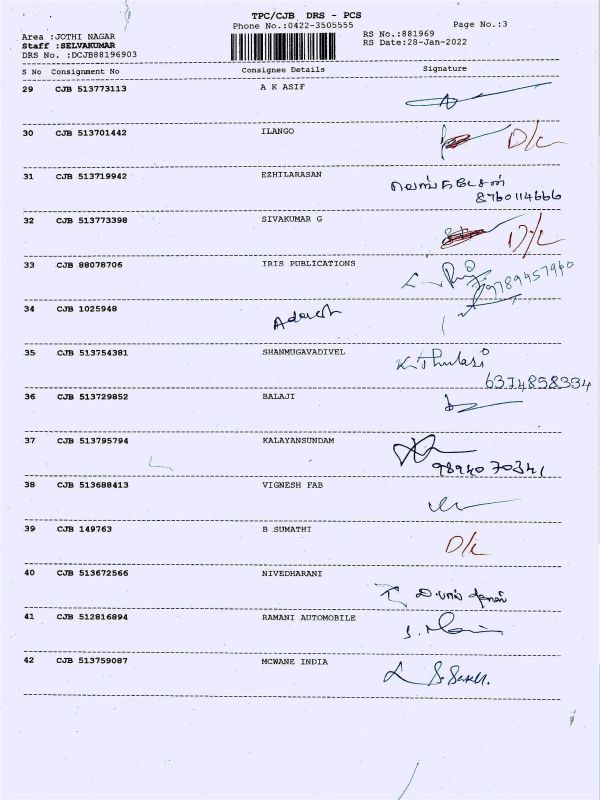 TPC/CJB DRS - PCS
Phone No.:0422-3505555
Page No.:3
Area :JOTHI NAGAR
RS No.:881969
Staff :SELVAKUMAR
RS Date:28-Jan-2022
DRS No. :DCJB88196903
S No Consignment No Consignee Details Signature
29 CJB 513773113 A K ASIF
30 CJB 513701442 ILANGO D/L
31 CJB 513719942 EZHILARASAN
8760114666
32 CJB 513773398 SIVAKUMAR G D/L
33 CJB 88078706 IRIS PUBLICATIONS
9789457960
34 CJB 1025948
35 CJB 513754381 SHANMUGAVADIVEL K. Thulasi
6374858334
36 CJB 513729852 BALAJI
37 CJB 513795794 KALAYANSUNDAM
9894070341
38 CJB 513688413 VIGNESH FAB
39 CJB 149763 B SUMATHI D/L
40 CJB 513672566 NIVEDHARANI
41 CJB 512816894 RAMANI AUTOMOBILE
42 CJB 513759087 MCWANE INDIA